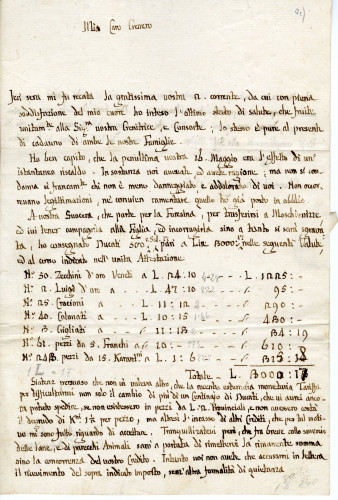 Mio Caro Genero
Jeri sera mi fu recata la gratissima vostra 12. corrente, da cui con piena
soddisfazione del mio cuore ho inteso l'ottimo stato di salute, che fruite
unitamte alla Sigra vostra Genitrice e Consorte; lo stesso è pure al presente
di cadauno di ambe le nostre Famiglie.
Ho ben capito, che la penultima vostra 16. Maggio era l'effetto di un'
istantaneo riscaldo. In sostanza voi aveste ragione; ma non si con-
danna chi non è meno danneggiato e addolorato di voi. Non occor-
revano legittimazioni, nè conviene rammentare quello ho già posto in oblìo.
A vostra Suocera, che parte per la Faesina, per trasferirsi
ed ivi tener compagnia alla Figlia, ed incorraggirla, sino a tanto si sarà sgravata,
ho consegnati Ducati 500: pari a Lire 3000: nelle seguenti Valute,
ed al corso indicato nell' vostra Attestazione.
No. 50. Zecchini d'oro Veneti a L 24:10 L 1225:
No. 2. Luigi d'oro a L 47:10 95:
No. 25. Crocioni a L 11:12 290:
No. 40. Colonati a L 10:15 430:
No. 3. Gigliati a 11:13 34:19
No. 61. pezzi da 5. Franchi a 10
No. 243. pezzi da 15. a L 1:6
Totale L 3000:17
Siatene persuaso che non in veruna altro, che la recente
per difficoltarmi non solo il cambio di più di un Centinajo di Ducati, che vi avrei anco-
ra potuto spedire, se non esistevano in pezzi da L 2. Provinciali, e non avessero
di per pezzo, ma altresì l'incasso di altri Crediti, che per tal moti-
vo mi sono fatti riguardo di accettare. Tranquillizatevi però, che fra breve collo smercio
delle lane, e di parecchi Animali sarò a portata di rimettervi la rimanente somma
sino la concorrenza del vostro Credito. Intanto voi avete che accusarmi in lettera
il ricevimento del sopra indicato importo, senz' altra formalità di quietanza